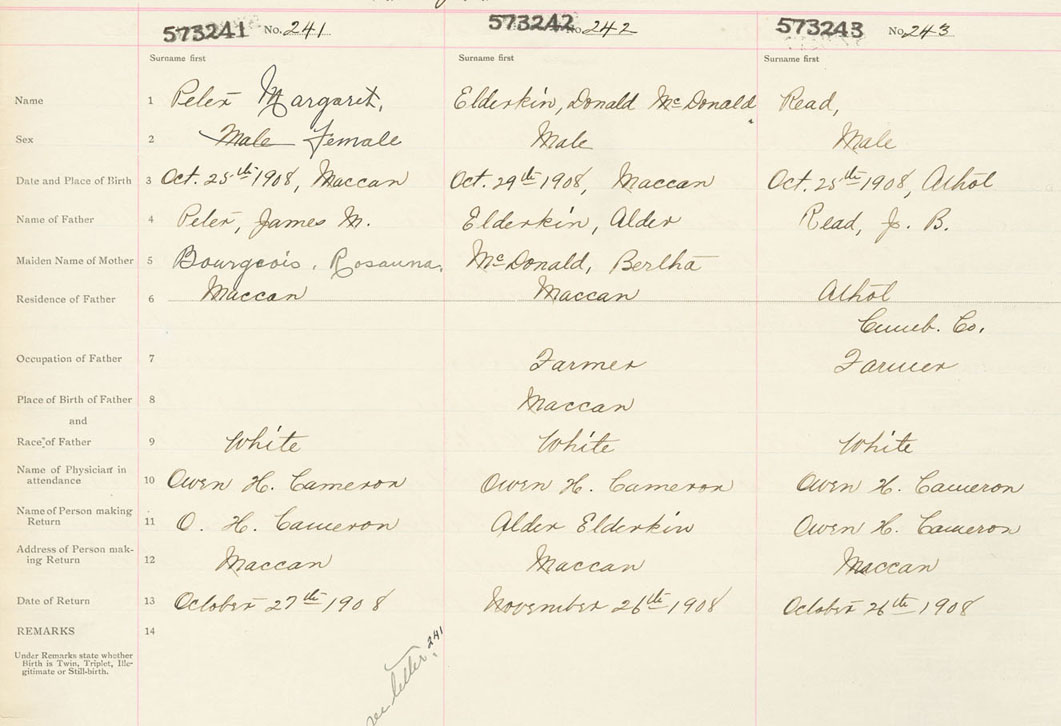 573241 No. 241 573242 No. 242 573243 No. 243
Surname first Surname first Surname first
Name 1 Peter Margaret, Elderkin, Donald McDonald Read,
Sex 2 Male Female Male Male
Date and Place of Birth 3 Oct. 25th 1908, Maccan Oct. 29th 1908, Maccan Oct. 25th 1908, Athol
Name of Father 4 Peter, James M. Elderkin, Alder Read, J. B.
Maiden Name of Mother 5 Bourgeois, Rosanna. McDonald, Bertha
Residence of Father 6 Maccan Maccan Athol
Cumb. Co.
Occupation of Father 7 Farmer Farmer
Place of Birth of Father 8 Maccan
and
Race of Father 9 White White White
Name of Physician in
attendance 10 Owen H. Cameron Owen H. Cameron Owen H. Cameron
Name of Person making
Return 11 O. H. Cameron Alder Elderkin Owen H. Cameron
Address of Person mak-
ing Return 12 Maccan Maccan Maccan
Date of Return 13 October 27th 1908 November 26th 1908 October 26th 1908
REMARKS 14
Under Remarks state whether
Birth is Twin, Triplet, Ille-
gitimate or Still-birth.
letter 241